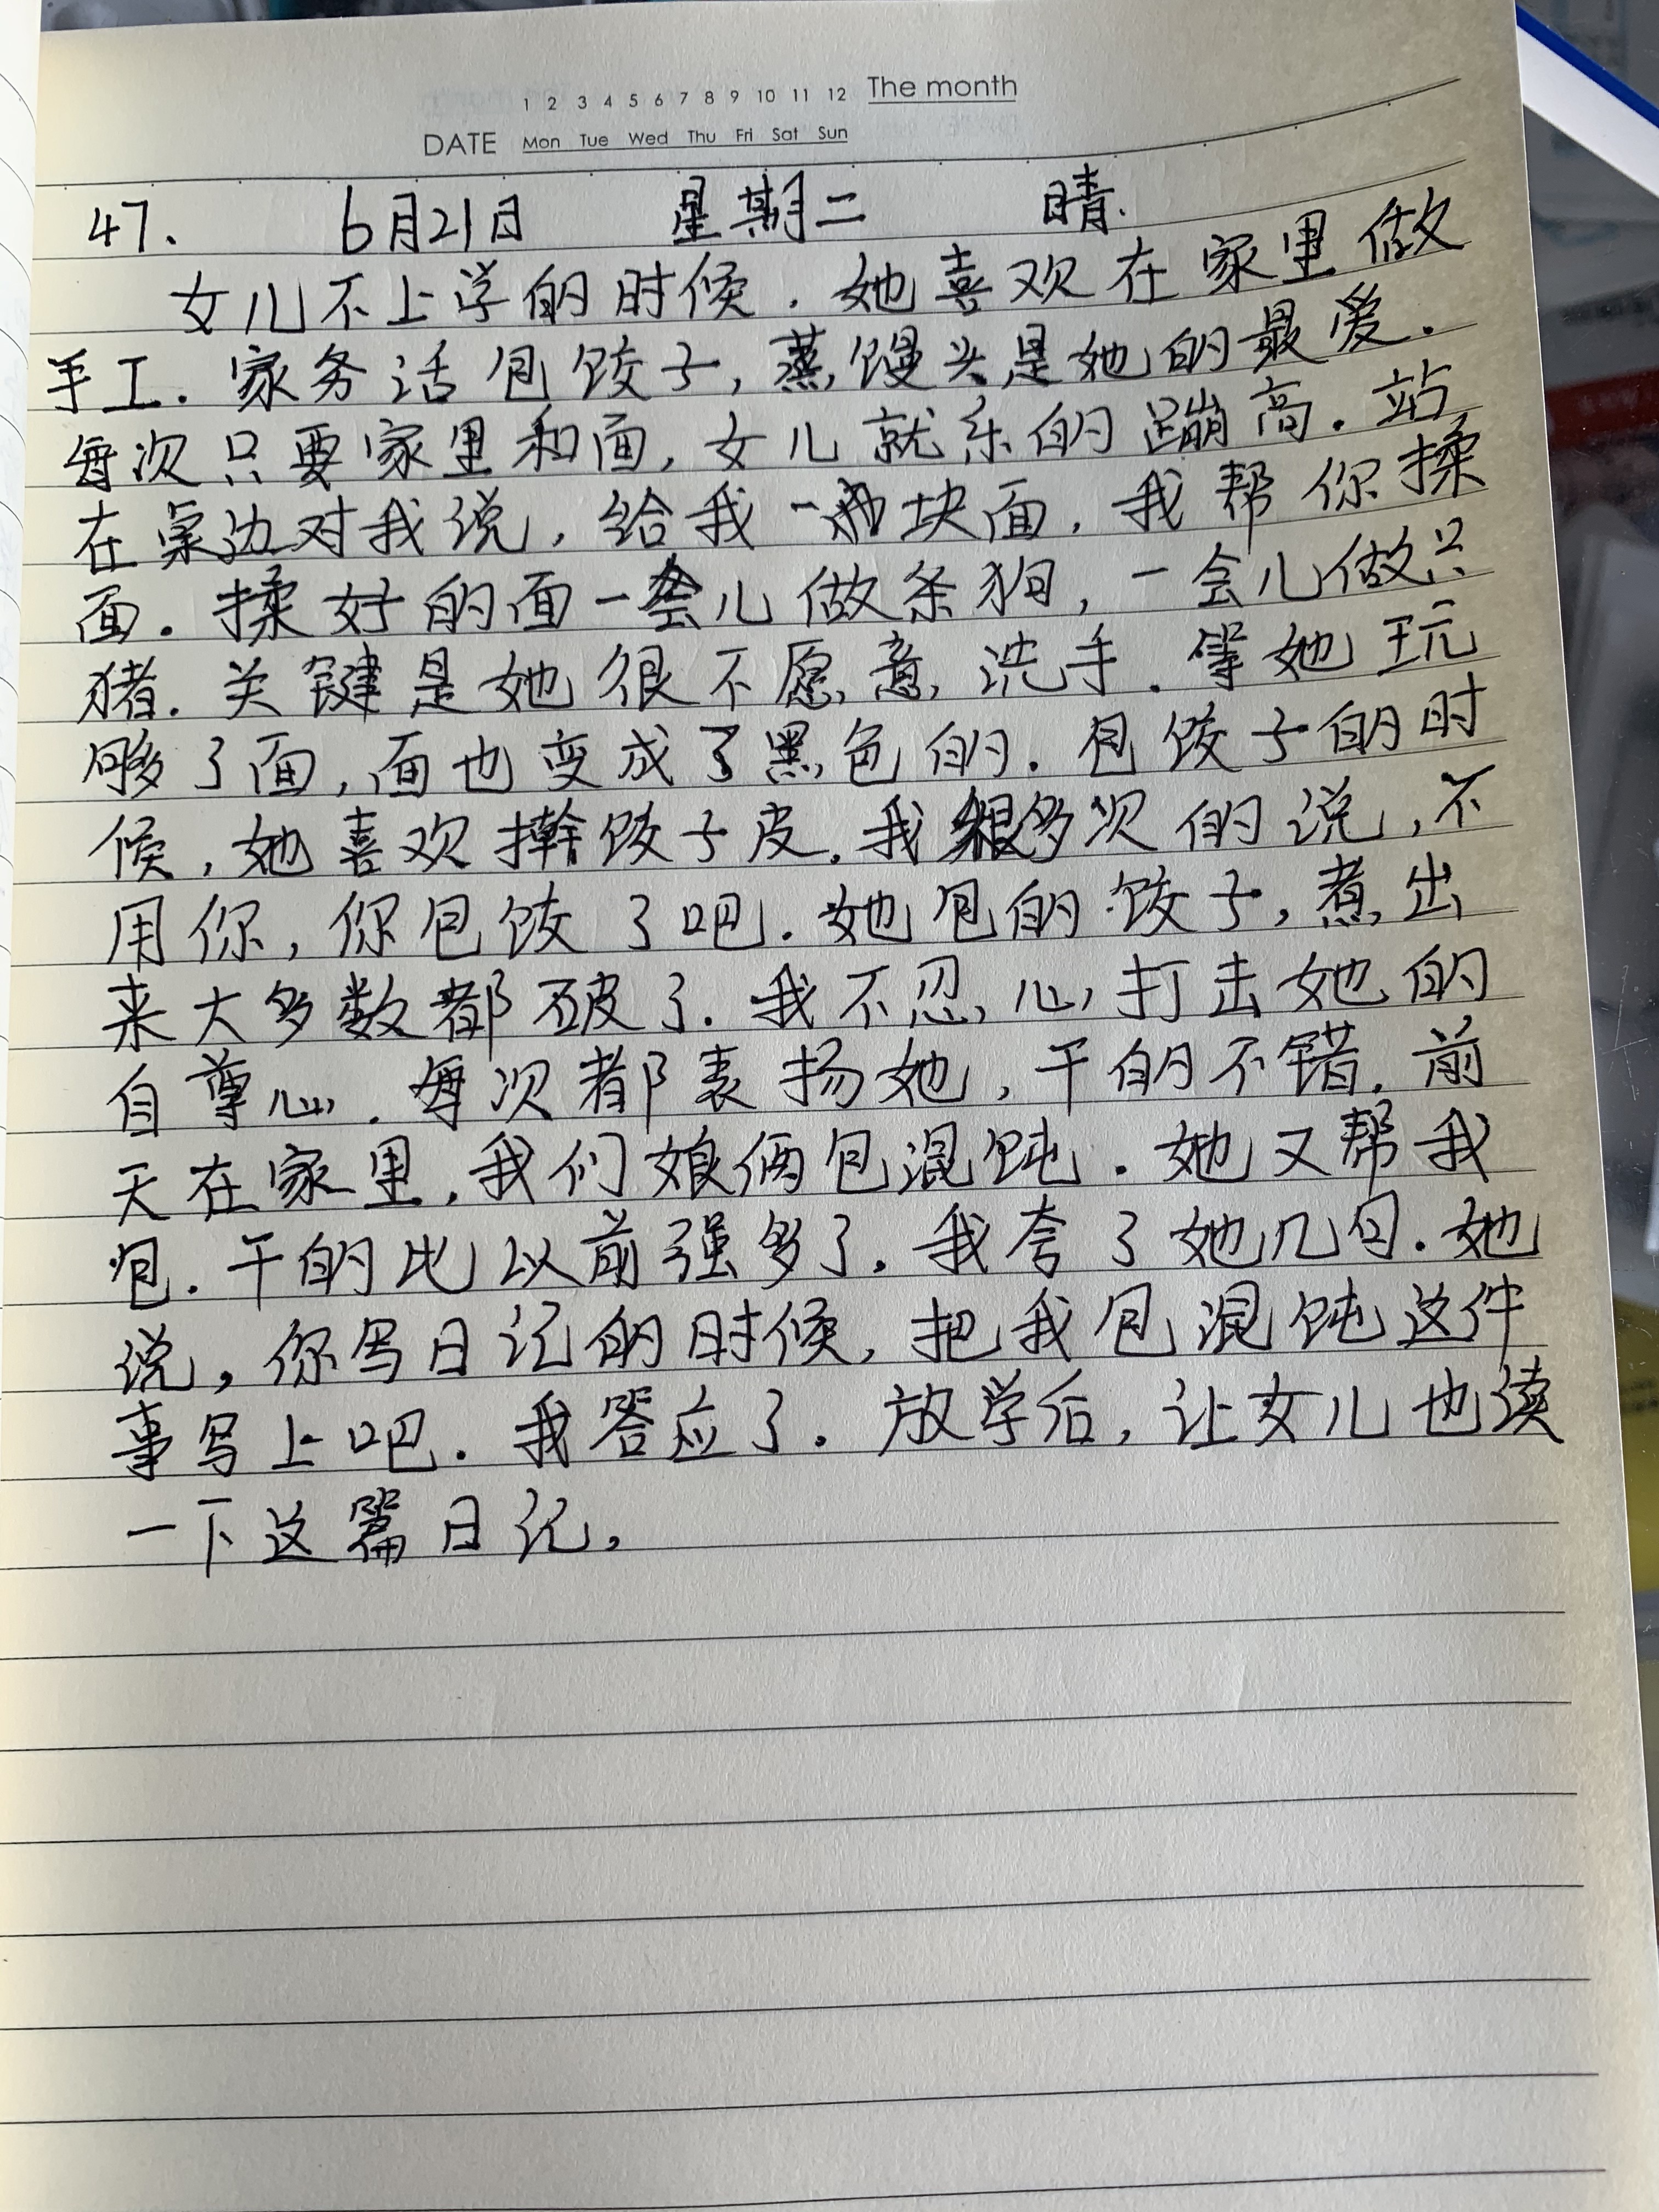 1 2 3 4 5 6 7 8 9 10 11 12 The month
DATE Mon Tue Wed Thu Fri Sat Sun
47. 6月21日 星期二 晴.
女儿不上学的时候.她喜欢在家里做
手工.家务活包饺子,蒸馒头是她的最爱.
每次只要家里和面,女儿就乐的蹦高.站
在桌边对我说,给我一块面,我帮你揉
面.揉好的面一会儿做条狗,一会儿做只
猪.关键是她很不愿意洗手.等她玩
够了面,面也变成了黑色的.包饺子的时
候,她喜欢擀饺子皮.我很多次的说,不
用你,你包饺了吧.她包的饺子,煮出
来大多数都破了.我不忍心打击她的
自尊心.每次都表扬她,干的不错.前
天在家里,我们娘俩包混饨.她又帮我
包.干的比以前强多了.我夸了她几句.她
说,你写日记的时候,把我包混饨这件
事写上吧.我答应了.放学后,让女儿也读
一下这篇日记.